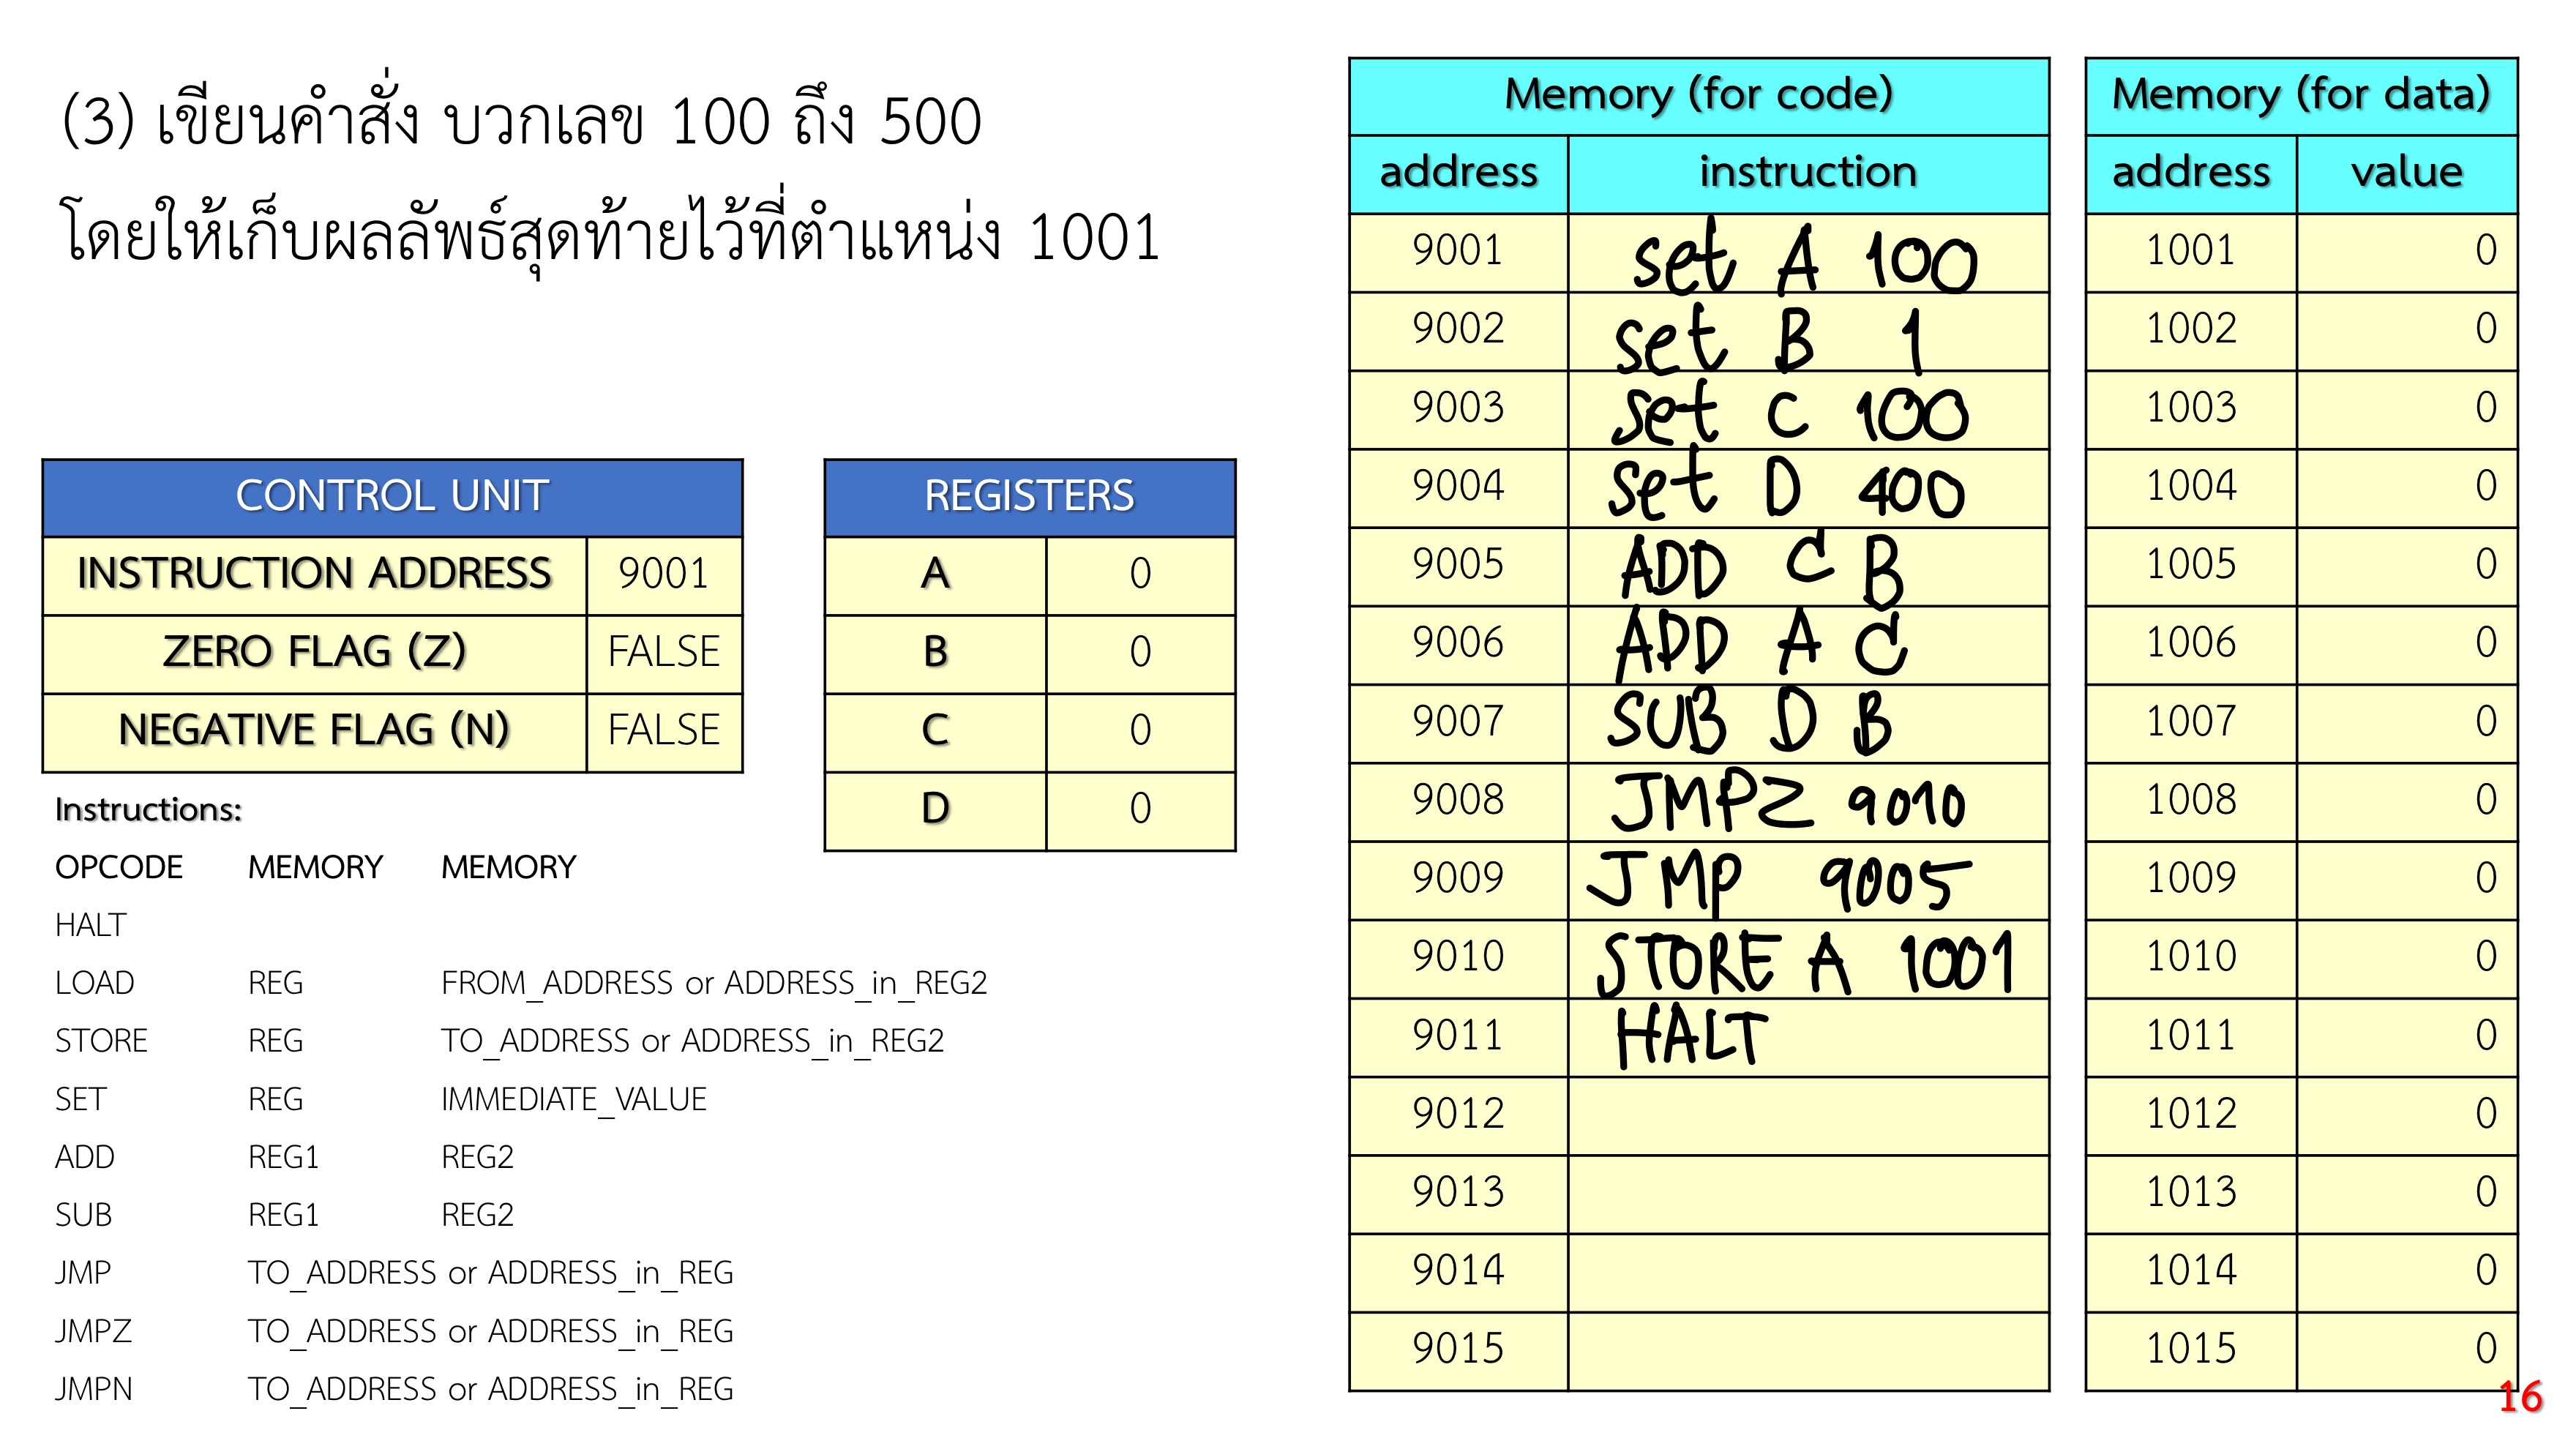 (3) เขียนคำสั่ง บวกเลข 100 ถึง 500
โดยให้เก็บผลลัพธ์สุดท้ายไว้ที่ตำแหน่ง 1001
CONTROL UNIT
INSTRUCTION ADDRESS 9001
ZERO FLAG (Z) FALSE
NEGATIVE FLAG (N) FALSE
REGISTERS
A 0
B 0
C 0
D 0
Instructions:
OPCODE MEMORY MEMORY
HALT
LOAD REG FROM_ADDRESS or ADDRESS_in_REG2
STORE REG TO_ADDRESS or ADDRESS_in_REG2
SET REG IMMEDIATE_VALUE
ADD REG1 REG2
SUB REG1 REG2
JMP TO_ADDRESS or ADDRESS_in_REG
JMPZ TO_ADDRESS or ADDRESS_in_REG
JMPN TO_ADDRESS or ADDRESS_in_REG
Memory (for code)
address instruction
9001 set A 100
9002 set B 1
9003 set C 100
9004 set D 400
9005 ADD C B
9006 ADD A C
9007 SUB D B
9008 JMPZ 9010
9009 JMP 9005
9010 STORE A 1001
9011 HALT
9012
9013
9014
9015
Memory (for data)
address value
1001 0
1002 0
1003 0
1004 0
1005 0
1006 0
1007 0
1008 0
1009 0
1010 0
1011 0
1012 0
1013 0
1014 0
1015 0
16